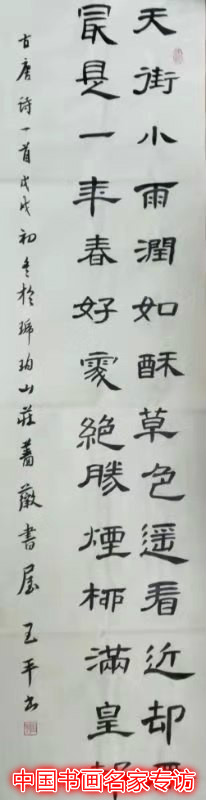 天街小雨潤如酥草色遥看近却
最是一年春好處絶勝煙柳滿皇都
古唐诗一首戊戌初冬於琊珀山莊蔷薇書屋王平书
中国书画名家专访